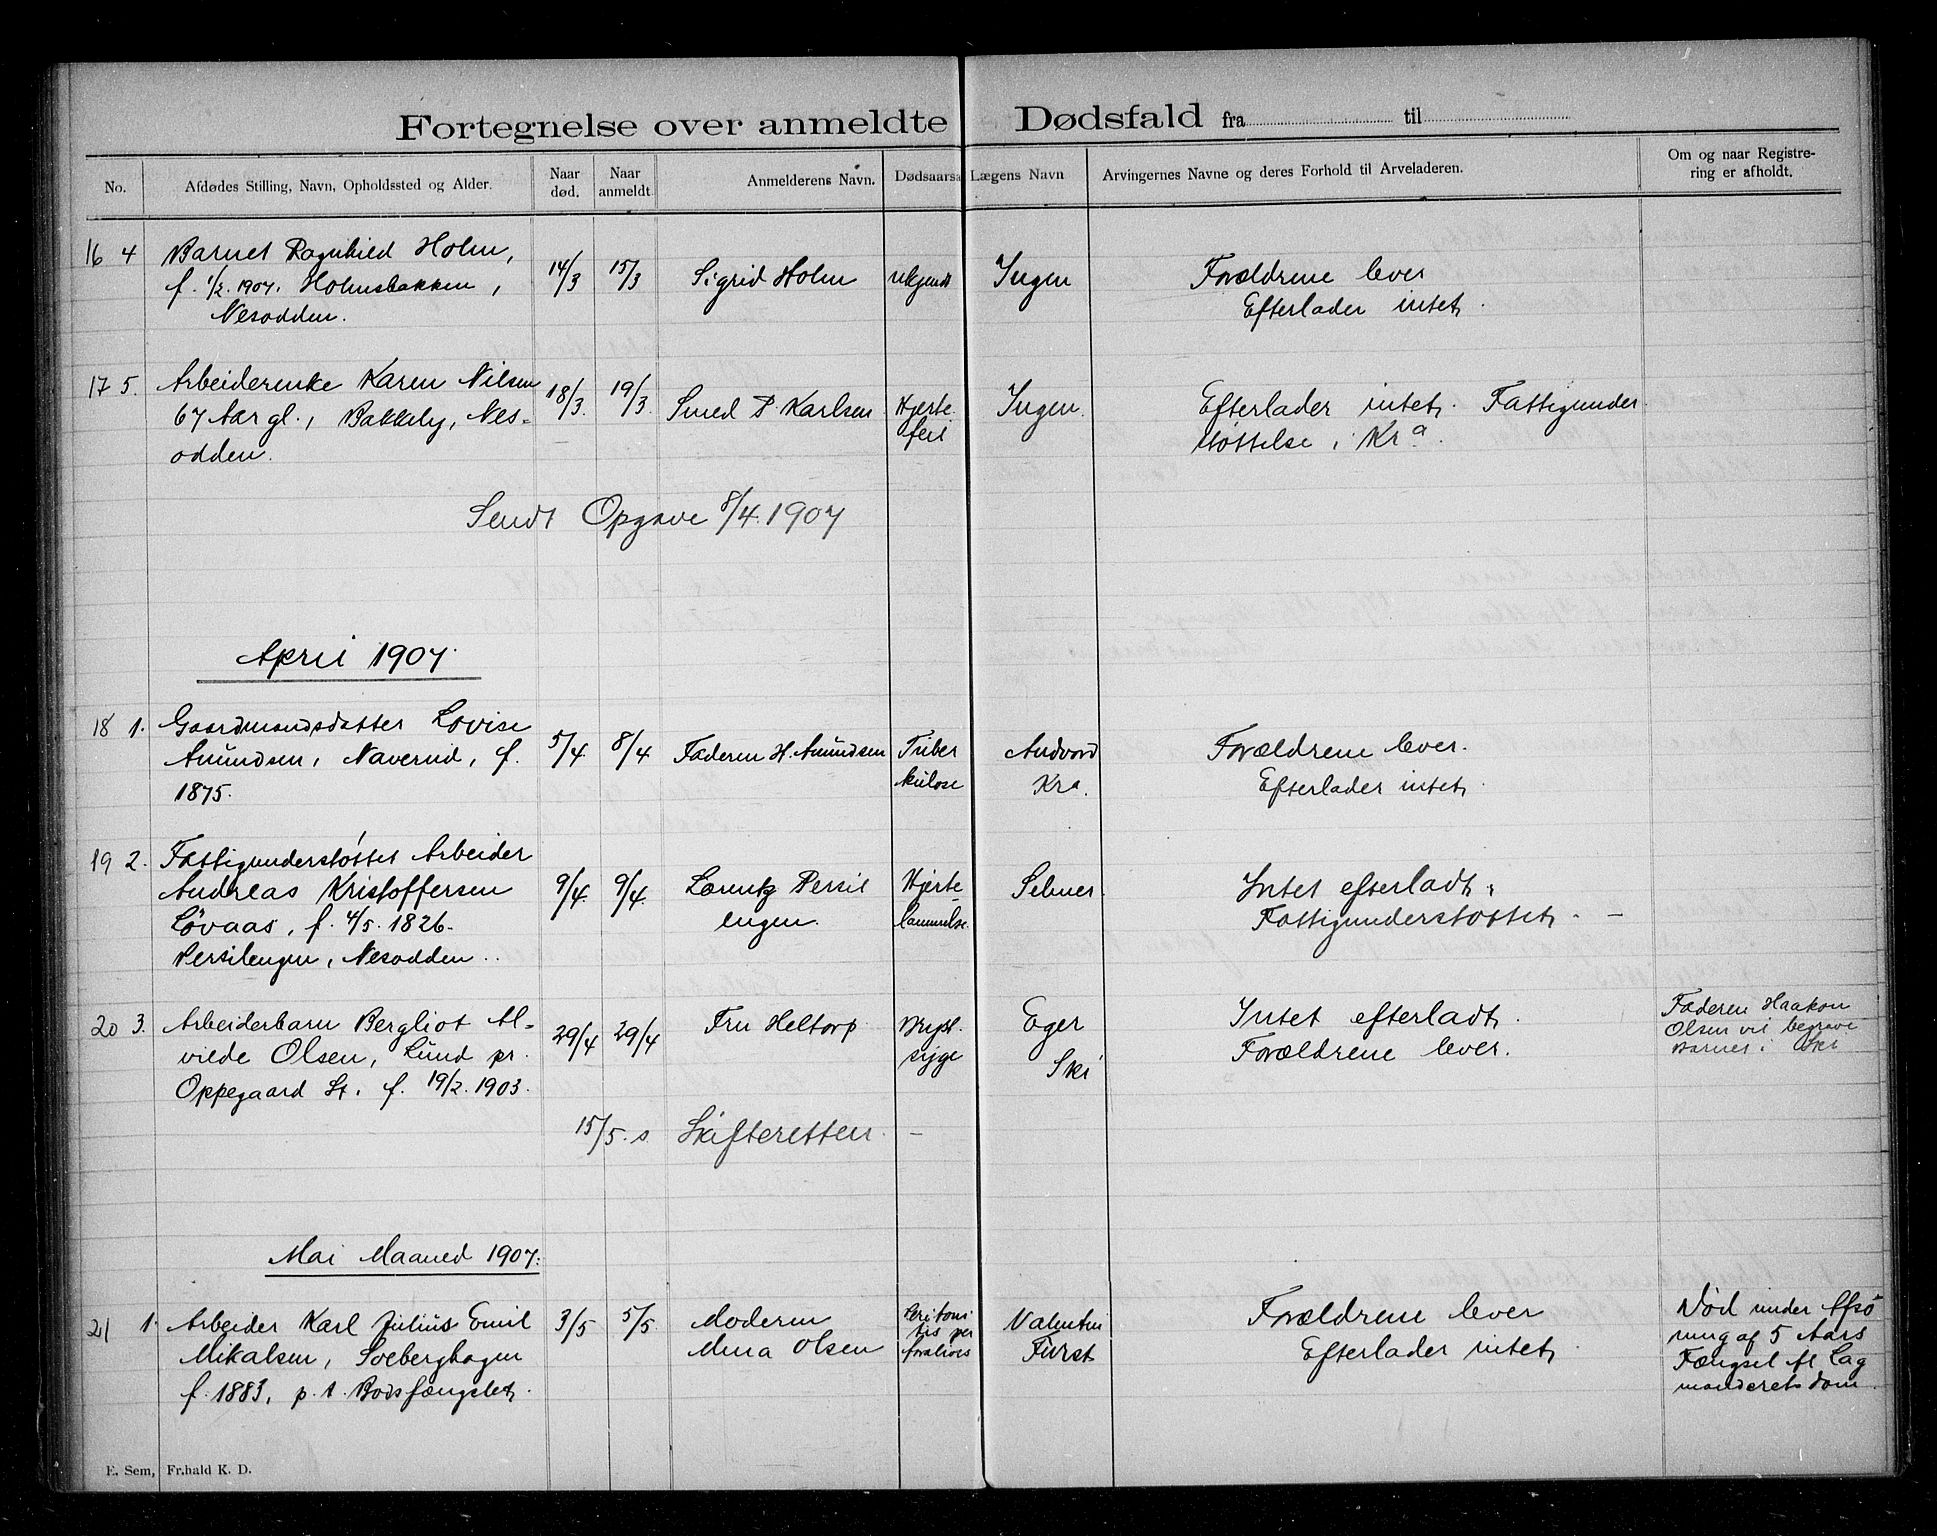 Fortegnelse over anmeldte Dødsfald fra til
No.
Afdødes Stilling, Navn, Opholdssted og Alder.
Naar død.
Naar anmeldt.
Anmelderens Navn.
Dødsaarsa
Lægens Navn
Arvingernes Navne og deres Forhold til Arveladeren.
Om og naar Registre-
ring er afholdt.
16 4 Barnet Ragnhild Holm,
f. 1/2. 1907. Holmsbakken,
Nesodden.
14/3 15/3 Sigrid Holm
ukjendt
Ingen
Forældrene lever
Efterlader intet.
17 5. Arbeiderenke Karen Nilsen
67 Aar gl., Bakkely, Nes-
odden.
18/3. 19/3. Smed P. Karlsen
Hjerte-
feil
Ingen.
Efterlader intet. Fattigunder
støttelse i Kra.
Sendt Opgave 8/4. 1907
April 1907.
18 1. Gaardmandsdatter Lovise
Amundsen, Naverud, f.
1875.
5/4 8/4 Faderen H. Amundsen
Tuber
kulose
Andvord
Kra.
Forældrene lever.
Efterlader intet.
19 2. Fattigunderstøttet Arbeider
Andreas Kristoffersen
Løvaas, f. 4/5. 1826.
Persilengen, Nesodden.
9/4. 9/4. Lorentz Persil
engen.
Hjerte-
lammelse.
Selmer.
Intet efterladt.
Fattigunderstøttet. -
20 3. Arbeiderbarn Bergliot Al-
vilde Olsen, Lund pr.
Oppegaard St. f. 19/2. 1903.
29/4 29/4 Fru Heltorp
Bryst.
syge
Eger
Ski
Intet efterladt.
Forældrene lever.
Faderen Haakon
Olsen vil begrave
Barnet i Ski
15/5. s. Skifteretten. -
Mai Maaned 1907.
21 1. Arbeider Karl Julius Emil
Mikalsen, Soeberghagen
f. 1883, p. t. Bodsfængslet.
3/5 5/5. Moderen
Mina Olsen
Peritoni
tis per
forativs
Valentin
Fürst
Forældrene lever
Efterlader intet.
Død under Afso
ning af 5 Aars
Fængsel ifl Lag
manderets dom.
E. Sem, Fr.hald K. D.